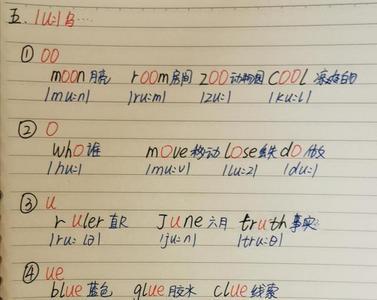 五. /u:/乌...
① oo
moon月亮 room房间 zoo动物园 cool凉爽的
/mu:n/ /ru:m/ /zu:/ /ku:l/
② o
who谁 move移动 lose丢失 do做
/hu:/ /mu:v/ /lu:z/ /du:/
③ u
ruler直尺 June六月 truth事实
/ru:lə/ /ju:n/ /tru:θ/
④ ue
blue蓝色 glue胶水 clue线索